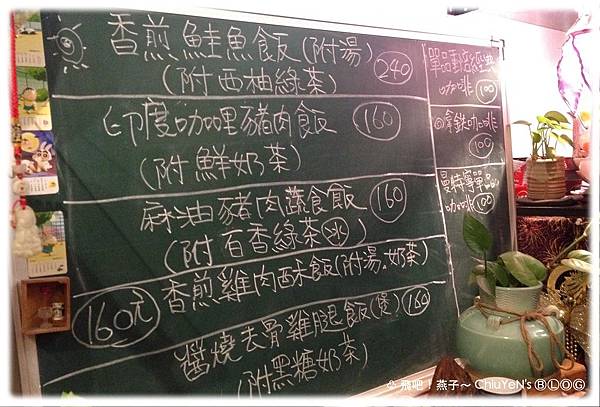 香煎鮭魚飯(附湯) 240
(附西柚綠茶)
印度咖哩豬肉飯 160
(附鮮奶茶)
麻油豬肉蔬食飯 160
(附百香綠茶(冰)
香煎雞肉西禾飯(附湯.奶茶)
160元
醬燒去骨雞腿飯(煲) 160
(附黑糖奶茶)
咖啡 100
◎拿鐵咖啡
100
曼特寧單品
咖啡 100
飛吧!燕子~ ChiuYeN's BLOG